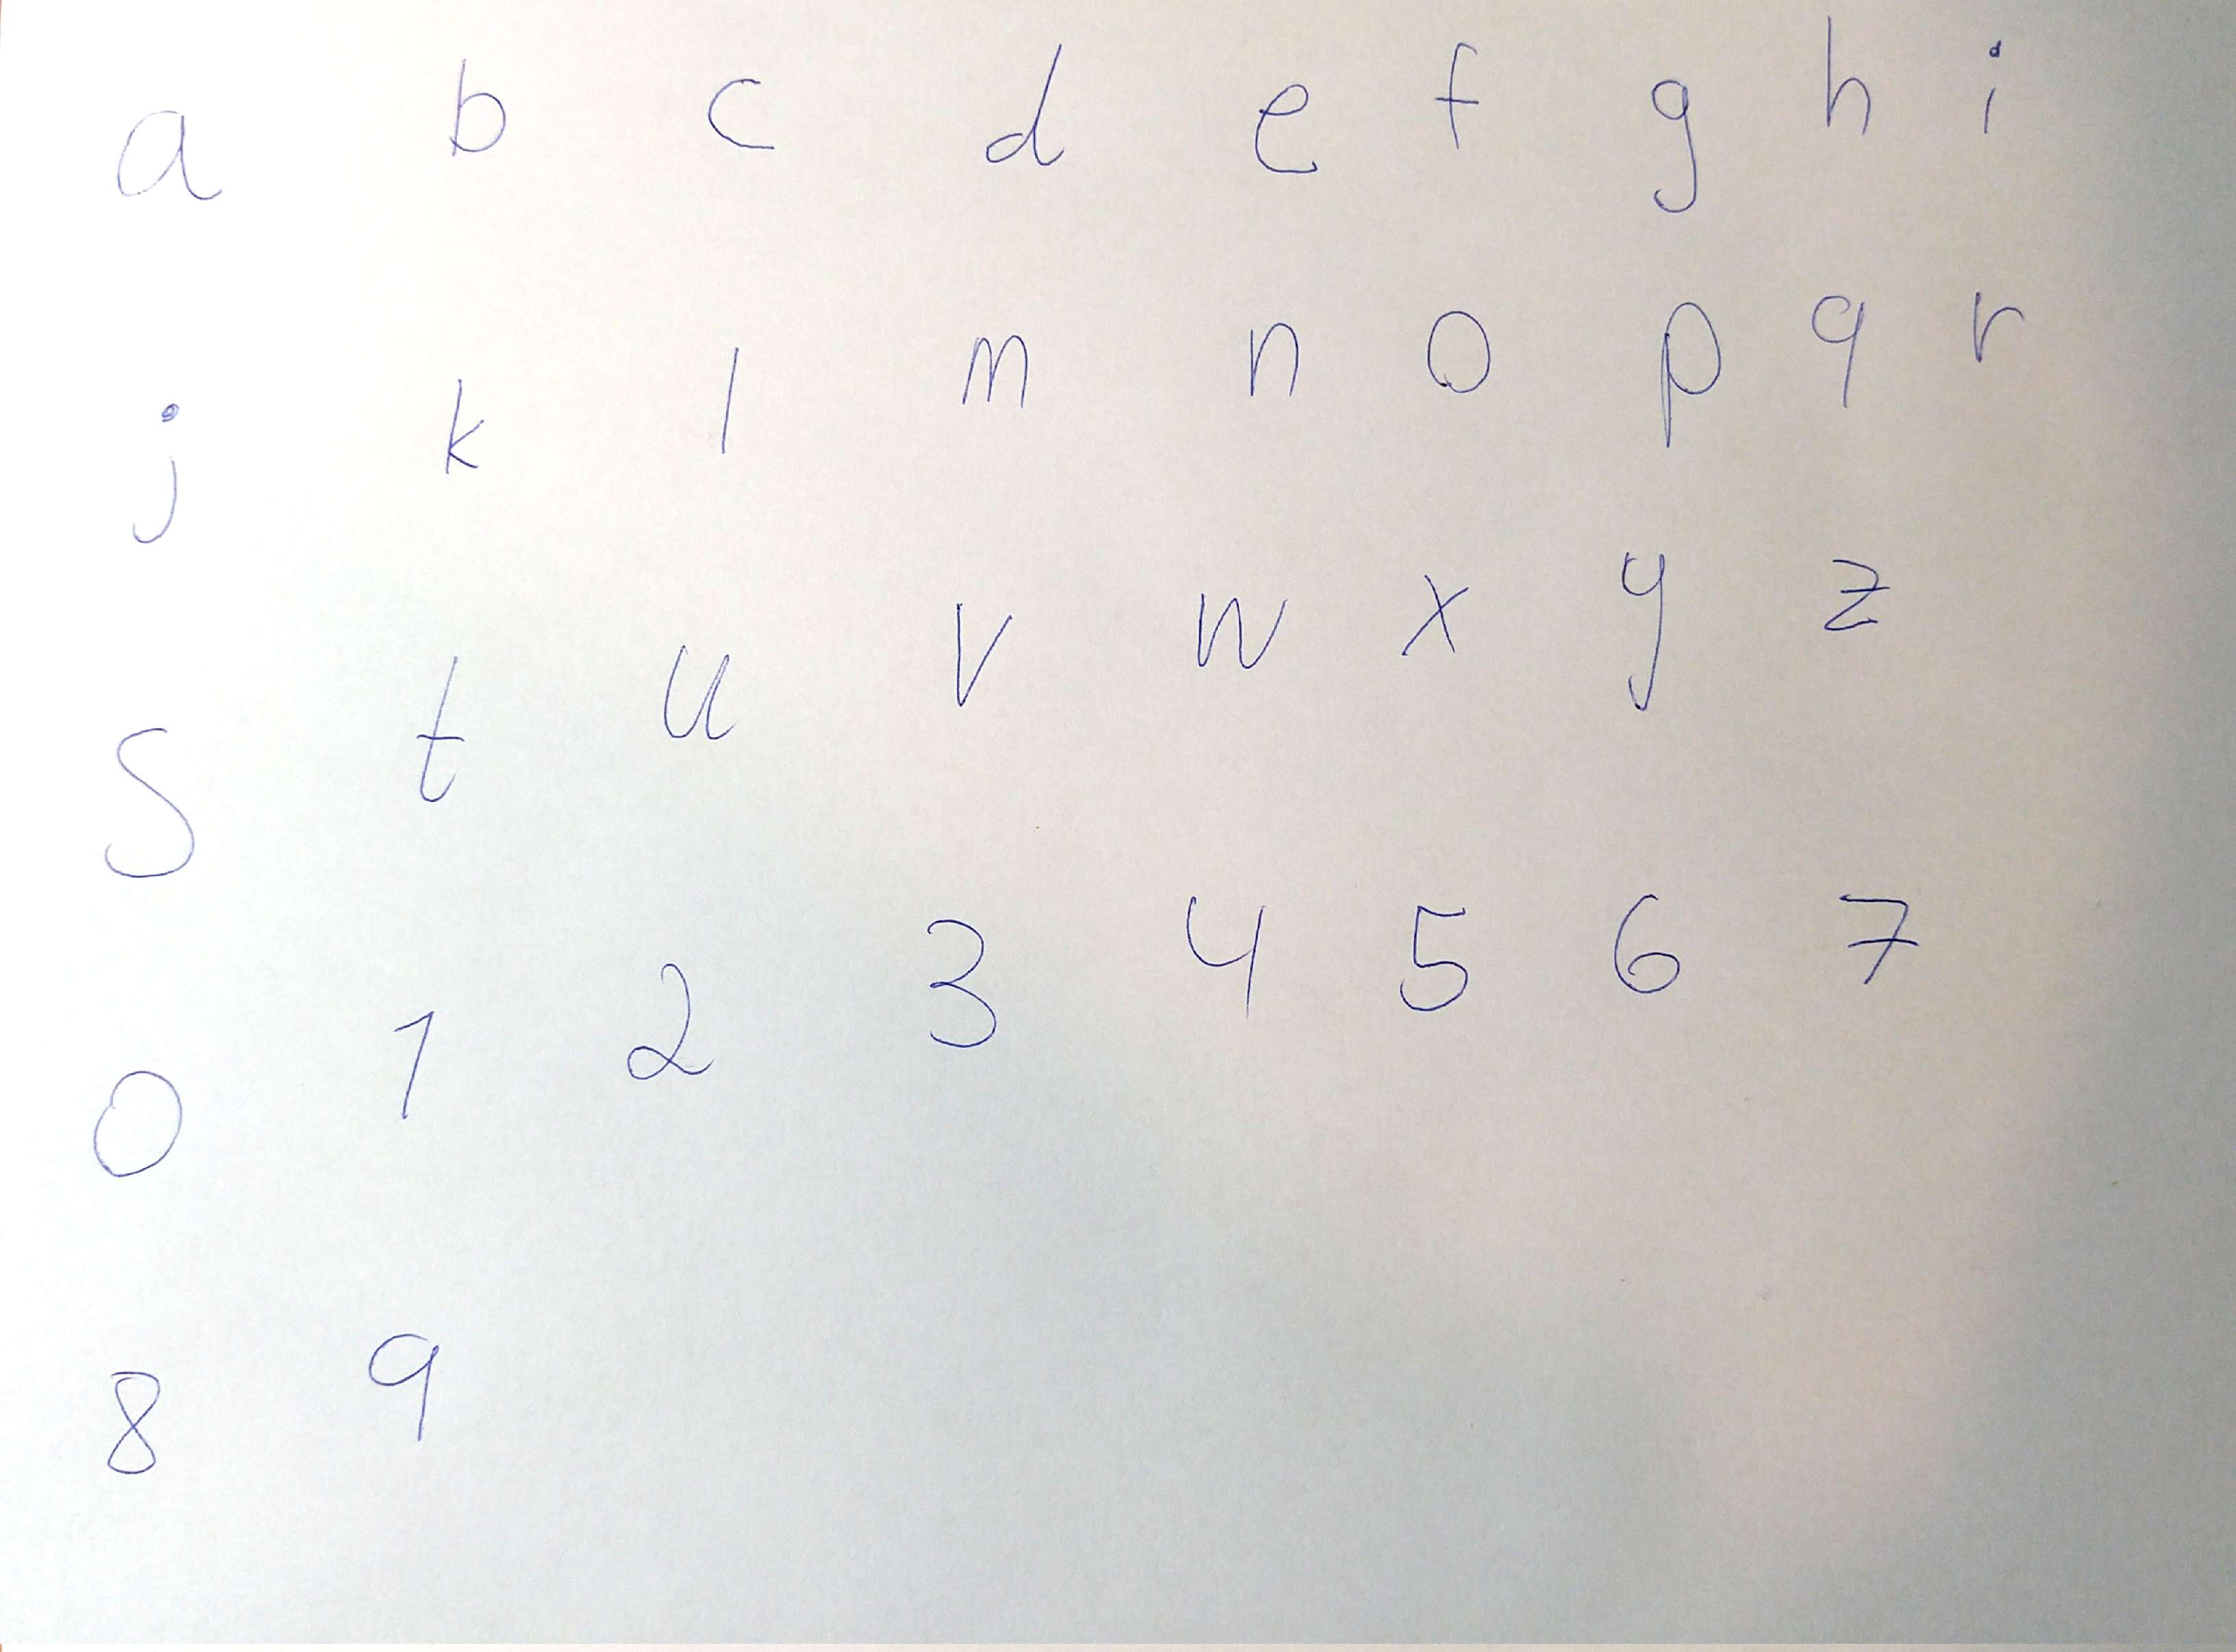 a b c d e f g h i
j k l m n o p q r
s t u v w x y z
0 1 2 3 4 5 6 7
8 9